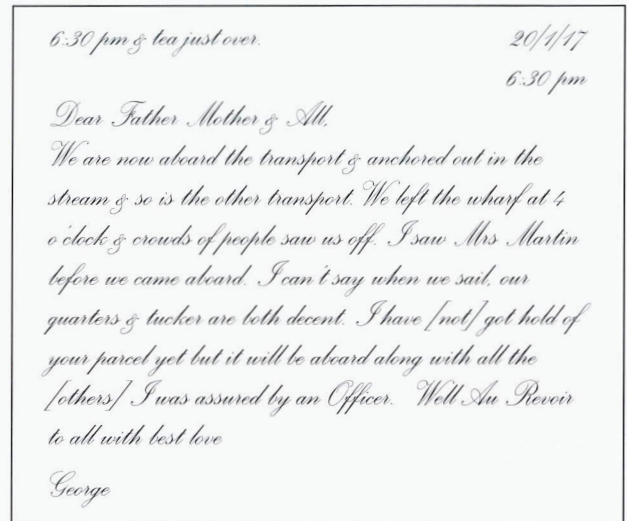 6:30 pm & tea just over. 20/1/17
6:30 pm
Dear Father Mother & All,
We are now aboard the transport & anchored out in the
stream & so is the other transport. We left the wharf at 4
o'clock & crowds of people saw us off. I saw Mrs Martin
before we came aboard. I can't say when we sail, our
quarters & tucker are both decent. I have [not] got hold of
your parcel yet but it will be aboard along with all the
[others] I was assured by an Officer. Well Au Revoir
to all with best love
George